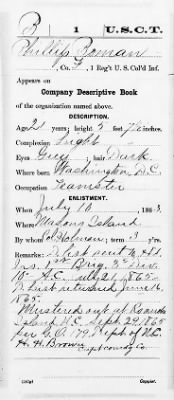 B | 1 | U.S.C.T.
Phillip Roman
Co. F, 1 Reg't U. S. Col'd Inf.
Appears on
Company Descriptive Book
of the organization named above.
DESCRIPTION.
Age 21 years; height 5 feet inches.
Complexion Bright
Eyes Grey, hair Dark
Where born Washington, D.C.
Occupation Teamster
ENLISTMENT.
When July 10, 1863.
Where Masons Island
By Col Holman; term 3 y'rs.
Remarks: Det sent to Hd
Qrs. 1st Brig. 3d Div.
10" A.C. July 21 1865.
Det returned June 16
1865.
Mustered out at Roanoke
Island N.C. Sept. 29 1865
per G.O. 179 Dept of N.C.
H. H. Brown
Capt comdg Co.
Copyist.